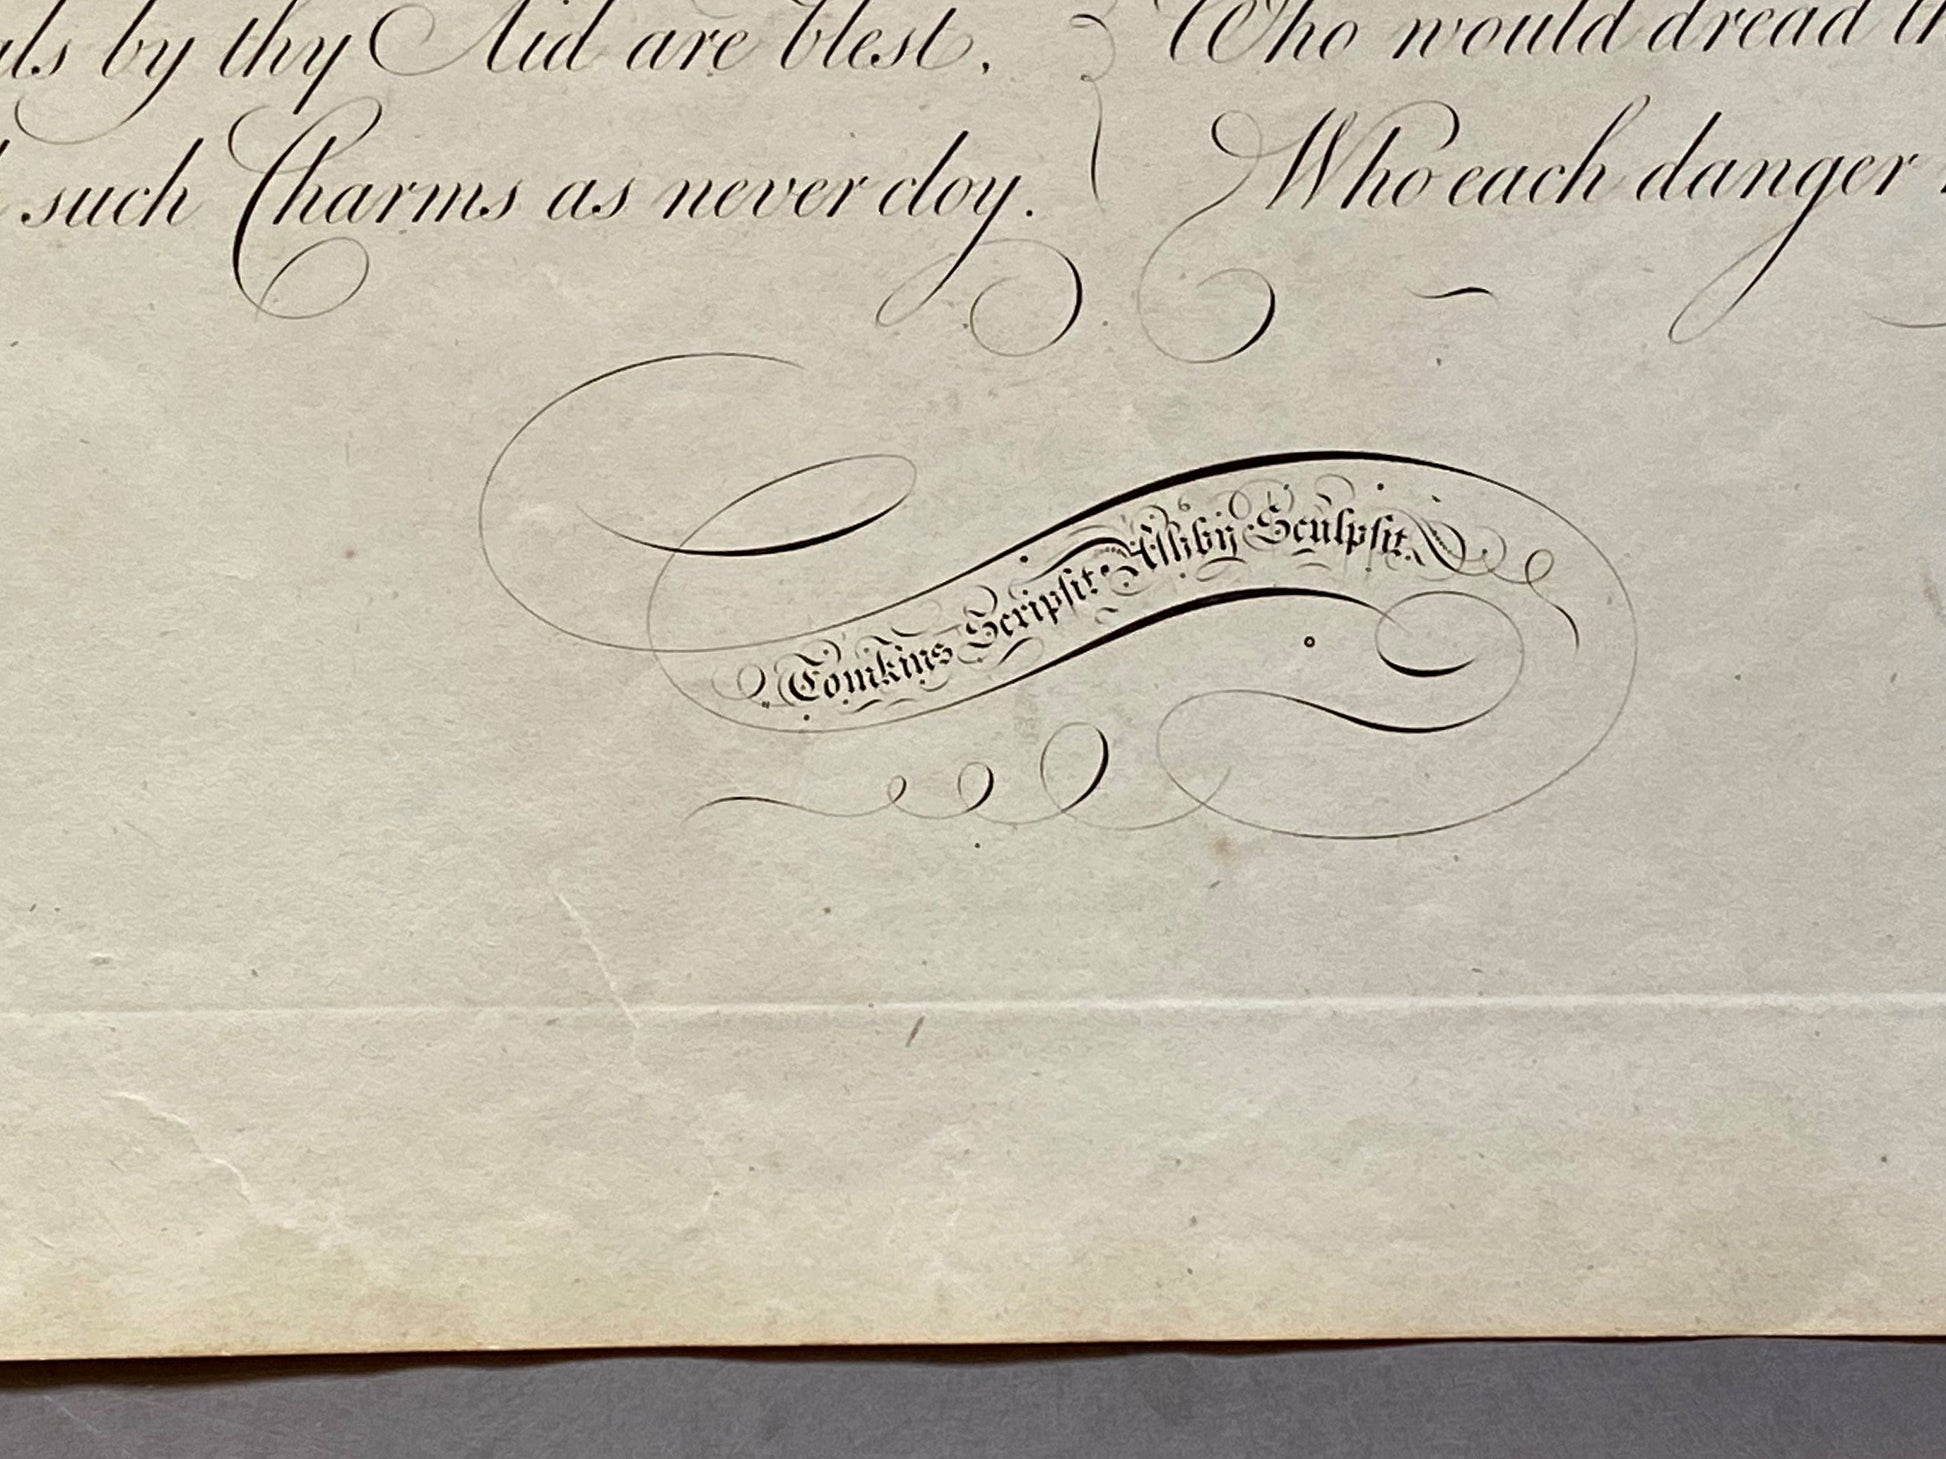 by thy Aid are blest, Who would dread
such Charms as never cloy. Who each danger
Tomkins Scripsit. Ashby Sculpsit.